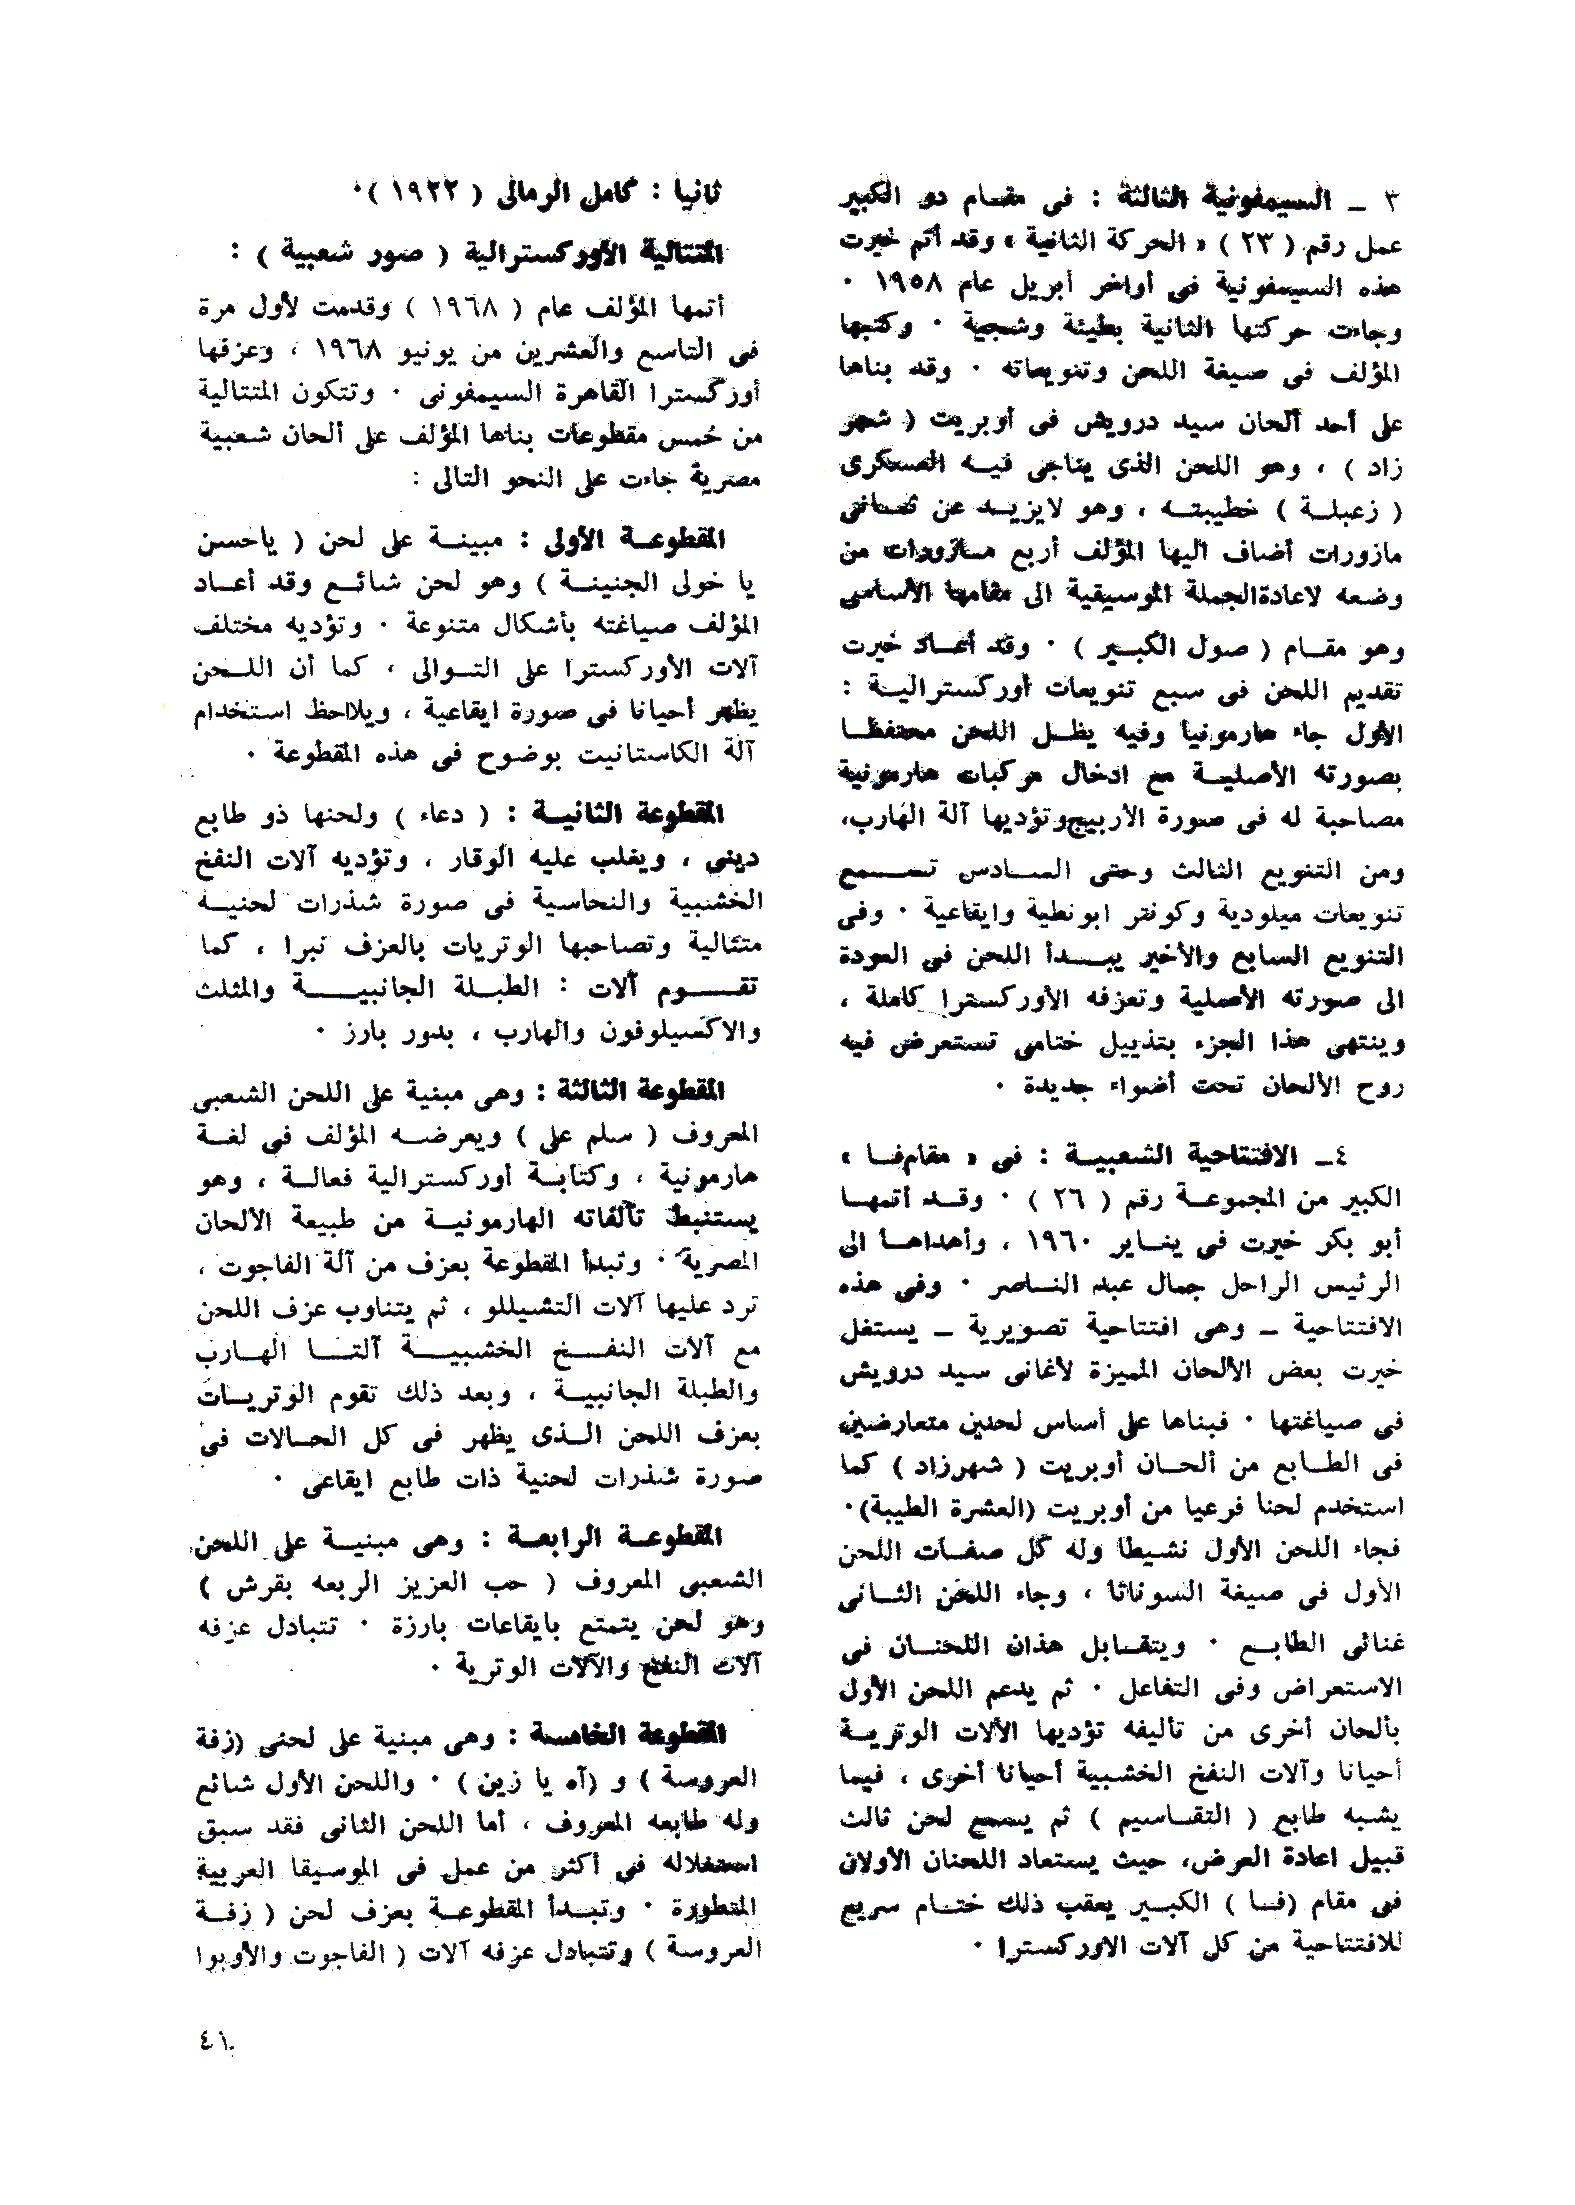 ٣ ــ السيمفونية الثالثة : فى مقـام دو الكبير
عمل رقم ( ٢٣ ) « الحركة الثانية » وقد أتم خيرت
هذه السيمفونية فى أواخر أبريل عام ١٩٥٨ ٠
وجاءت حركتها الثانية بطيئة وشجية ٠ وكتبها
المؤلف فى صيغة اللحن وتنويعاته ٠ وقد بناها
على أحد ألحان سيد درويش فى أوبريت ( شهر
زاد ) ، وهو اللحن الذى يناجى فيـه العسكرى
( زعبلـة ) خطيبتـه ، وهو لايزيـد عن ثمـانى
مازورات أضاف اليها المؤلف أربع مـازورات من
وضعه لاعادةالجملة الموسيقية الى مقامها الأساسى
وهو مقـام ( صول الكبـير ) ٠ وقد أعـاد خيرت
تقديم اللحن فى سبع تنويعات أوركسترالية :
الأول جاء هارمونيا وفيه يظـل اللحن محتفظـا
بصورته الأصلية مع ادخال مركبات هارمونية
مصاحبة له فى صورة الأربيج وتؤديها آلة الهارب،
ومن التنويع الثالث وحتى السـادس تسـمع
تنويعات ميلودية وكونتر ابونطية وايقاعية ٠ وفى
التنويع السابع والأخير يبـدأ اللحن فى العودة
الى صورته الأصلية وتعزفه الأوركسترا كاملة ،
وينتهى هذا الجزء بتذييل ختامى تستعرض فيه
روح الألحان تحت أضواء جديدة ٠
٤ــ الافتتاحية الشعبيـة : فى « مقام فـا »
الكبير من المجموعـة رقم ( ٢٦ ) ٠ وقـد أتمهـا
أبو بكر خيرت فى ينـاير ١٩٦٠ ، وأهداهـا الى
الرئيس الراحل جمال عبد النـاصر ٠ وفى هذه
الافتتاحية ــ وهى افتتاحية تصويرية ــ يستغل
خيرت بعض الألحان المميزة لأغانى سيد درويش
فى صياغتها ٠ فبناها على أساس لحنين متعارضين
فى الطـابع من ألحـان أوبريت ( شهرزاد ) كما
استخدم لحنا فرعيا من أوبريت (العشرة الطيبة)٠
فجاء اللحن الأول نشيطا وله كل صفات اللحن
الأول فى صيغة السوناتا ، وجاء اللحن الثـانى
غنائى الطابـع ٠ ويتقـابل هذان اللحنـان فى
الاستعراض وفى التفاعل ٠ ثم يدعم اللحن الأول
بألحان أخرى من تأليفه تؤديها الآلات الوتريـة
أحيانا وآلات النفخ الخشبية أحيانا أخرى ، فيما
يشبه طابع ( التقـاسيم ) ثم يسمع لحن ثالث
قبيل اعادة العرض، حيث يستعاد اللحنان الأولان
فى مقام (فـا ) الكبـير يعقب ذلك ختـام سريع
للافتتاحية من كل آلات الأوركسترا ٠
ثانيا : كامل الرمالى ( ١٩٢٢ )٠
المتتالية الأوركسترالية ( صور شعبية ) :
أتمها المؤلف عام ( ١٩٦٨ ) وقدمت لأول مرة
فى التاسع والعشرين من يونيو ١٩٦٨ ، وعزفها
أوركسترا القاهرة السيمفونى ٠ وتتكون المتتالية
من خمس مقطوعات بناها المؤلف على ألحان شعبية
مصرية جاءت على النحو التالى :
المقطوعـة الأولى : مبينـة على لحن ( ياحسن
يا خولى الجنينـة ) وهو لحن شائـع وقد أعـاد
المؤلف صياغته بأشكال متنوعة ٠ وتؤديه مختلف
آلات الأوركسترا على التـوالى ، كما أن اللـحن
يظهر أحيانا فى صورة ايقاعية ، ويلاحظ استخدام
آلة الكاستانيت بوضوح فى هذه المقطوعة ٠
المقطوعة الثانيـة : ( دعاء ) ولحنها ذو طابع
دينى ، ويغلب عليه الوقار ، وتؤديه آلات النفخ
الخشبية والنحاسية فى صورة شذرات لحنيـة
متتالية وتصاحبها الوتريات بالعزف نبرا ، كما
تقـــوم آلات : الطبـلة الجانبيـــة والمثلث
والاكسيلوفون والهارب ، بدور بارز ٠
المقطوعة الثالثة : وهى مبنية على اللحن الشعبى
المعروف ( سلم على ) ويعرضـه المؤلف فى لغـة
هارمونية ، وكتابـة أوركسترالية فعالـة ، وهو
يستنبط تآلفاته الهارمونيـة من طبيعة الألحان
المصرية ٠ وتبدأ المقطوعة بعزف من آلة الفاجوت ،
ترد عليها آلات التشيللو ، ثم يتناوب عزف اللحن
مع آلات النفـخ الخشبيـــة آلتـا الهـارب
والطبلة الجانبيـة ، وبعد ذلك تقوم الوتريـات
بعزف اللحن الـذى يظهر فى كل الحـالات فى
صورة شذرات لحنية ذات طابع ايقاعى ٠
المقطوعـة الرابعـة : وهى مبنيـة على اللحن
الشعبى المعروف ( حب العزيز الربعه بقرش )
وهو لحن يتمتع بايقاعات بارزة ٠ تتبادل عزفه
آلات النفخ والآلات الوترية ٠
المقطوعة الخامسة : وهى مبنية على لحنى (زفة
العروسة ) و (آه يا زين ) ٠ واللحن الأول شائع
وله طابعه المعروف ، أما اللحن الثانى فقد سبق
استغلاله فى أكثر من عمل فى الموسيقا العربية
المتطورة ٠ وتبـدأ المقطوعـة بعزف لحن ( زفـة
العروسة ) وتتبادل عزفه آلات ( الفاجوت والأوبوا
٤١